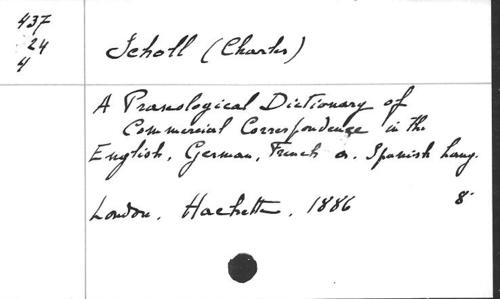 437
24
4
Scholl (Charles)
A Phraseological Dictionary of
Commercial Correspondence in the
English, German, French a. Spanish Lang.
London, Hachette, 1886 8°